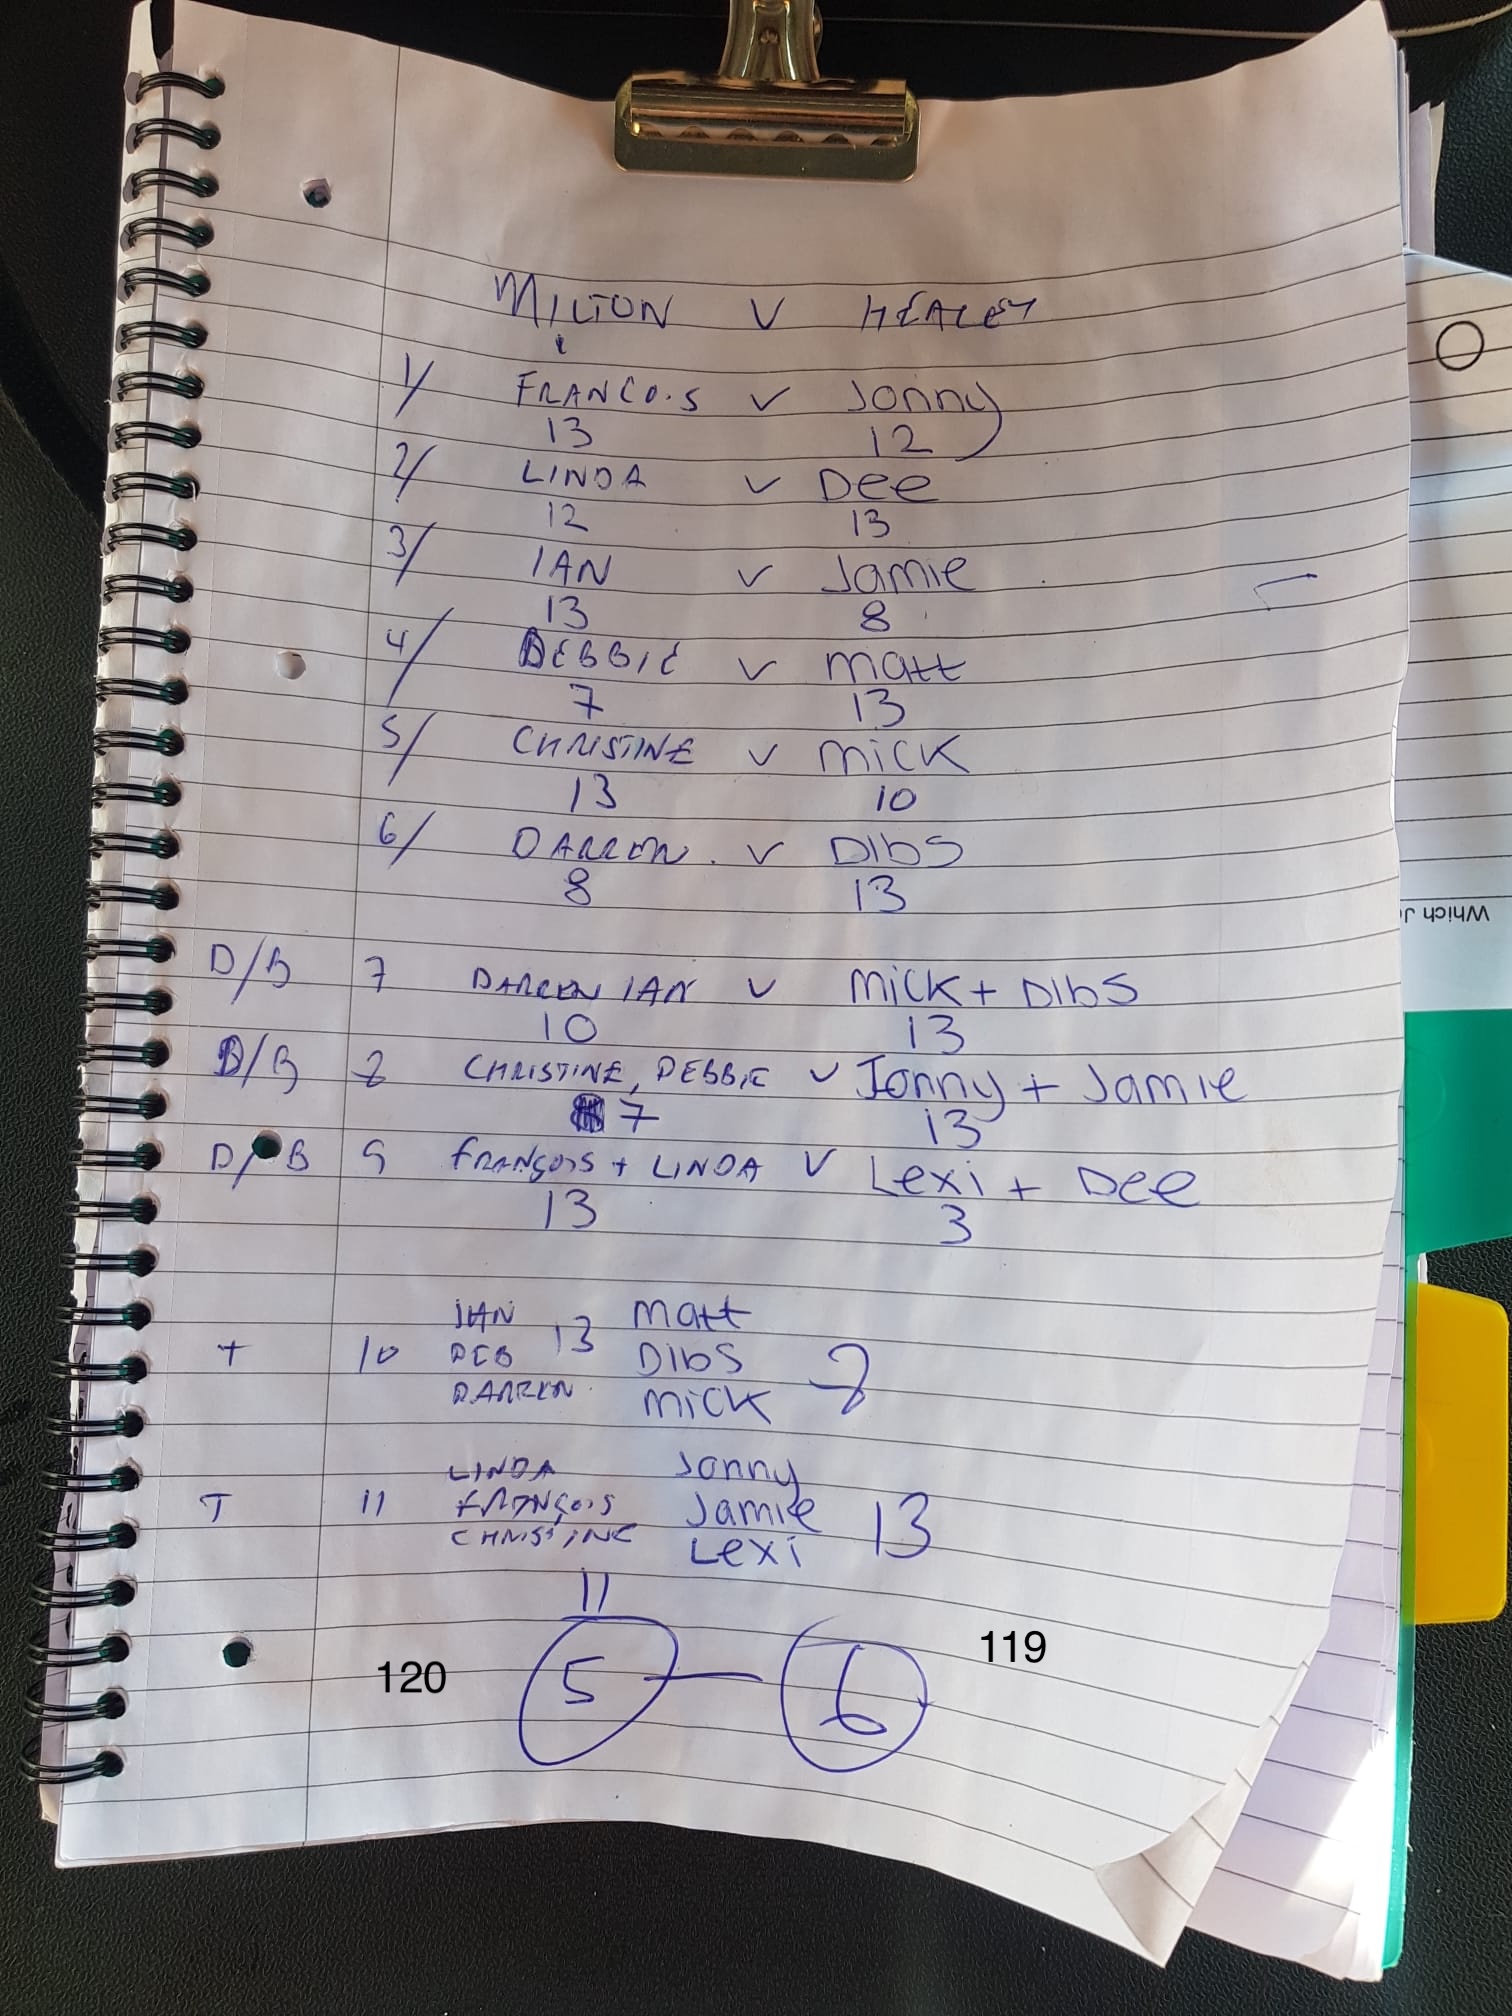 MILTON V HEALEY
1/ FRANCO.S V Jonny
13 12
2/ LINDA V Dee
12 13
3/ IAN V Jamie
13 8
4/ DEBBIE V Matt
7 13
5/ CHRISTINE V Mick
13 10
6/ DARREN. V DIbS
8 13
D/B 7 DARREN IAN V Mick + DIbS
10 13
D/B 8 CHRISTINE, DEBBIE V Jonny + Jamie
7 13
D/B 9 FRANÇOIS + LINDA V Lexi + Dee
13 3
IAN Matt
T 10 DEB 13 DIbS 8
DARREN. Mick
LINDA Jonny
T 11 FRANÇOIS Jamie 13
CHRISTINE Lexi
11
120 5 — 6 119
Which J